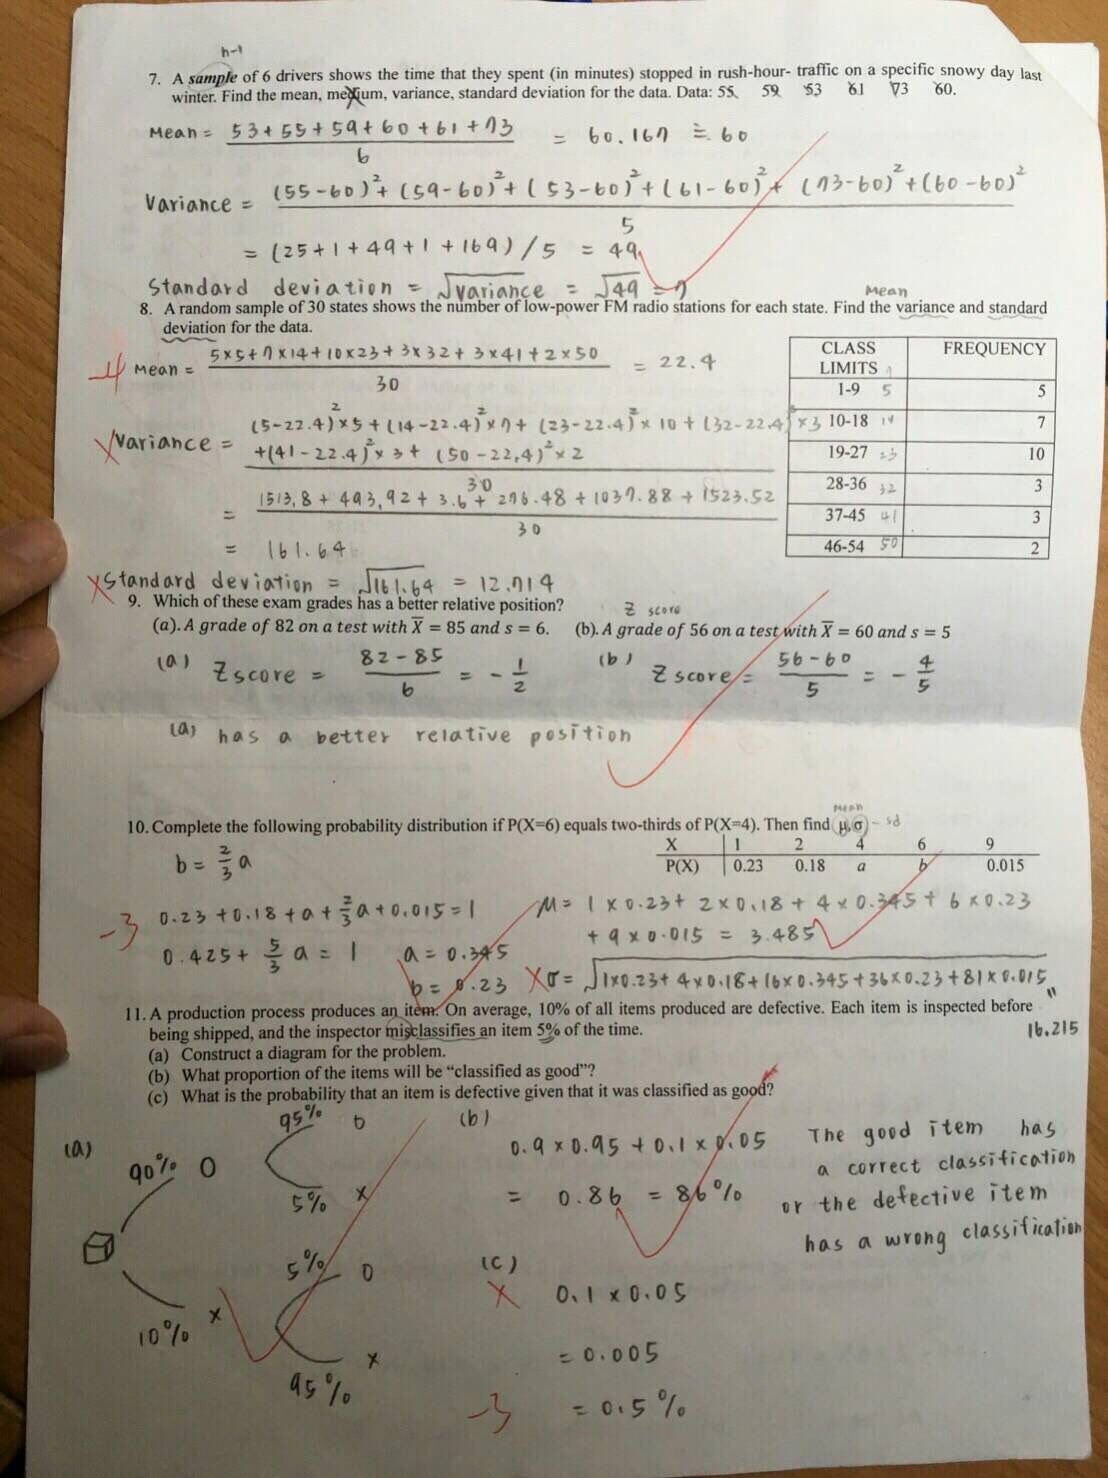 n-1
7. A sample of 6 drivers shows the time that they spent (in minutes) stopped in rush-hour- traffic on a specific snowy day last
winter. Find the mean, medium, variance, standard deviation for the data. Data: 55 59 53 61 73 60.
Mean = 53+55+59+60+61+73 / 6 = 60.167 ≒ 60
Variance = (55-60)²+(59-60)²+(53-60)²+(61-60)²+(73-60)²+(60-60)² / 5
= (25+1+49+1+169)/5 = 49
Standard deviation = √variance = √49 = 7
Mean
8. A random sample of 30 states shows the number of low-power FM radio stations for each state. Find the variance and standard
deviation for the data.
CLASS LIMITS FREQUENCY
1-9 5 5
10-18 14 7
19-27 23 10
28-36 32 3
37-45 41 3
46-54 50 2
-4 Mean = 5×5+7×14+10×23+3×32+3×41+2×50 / 30 = 22.4
X Variance = (5-22.4)²×5+(14-22.4)²×7+(23-22.4)²×10+(32-22.4)²×3
+(41-22.4)²×3+(50-22.4)²×2
30
= 1513.8+493.92+3.6+276.48+1037.88+1523.52 / 30
= 161.64
X Standard deviation = √161.64 = 12.714
9. Which of these exam grades has a better relative position? Z score
(a). A grade of 82 on a test with X̅ = 85 and s = 6. (b). A grade of 56 on a test with X̅ = 60 and s = 5
(a) Z score = 82-85 / 6 = -1/2 (b) Z score = 56-60 / 5 = -4/5
(a) has a better relative position
Mean
10. Complete the following probability distribution if P(X=6) equals two-thirds of P(X=4). Then find μ,σ - sd
X 1 2 4 6 9
P(X) 0.23 0.18 a b 0.015
b = 2/3 a
-3 0.23+0.18+a+2/3a+0.015=1
0.425+5/3 a = 1 a = 0.345
b = 0.23
M = 1×0.23+2×0.18+4×0.345+6×0.23
+9×0.015 = 3.485
X σ = √1×0.23+4×0.18+16×0.345+36×0.23+81×0.015
"
16.215
11. A production process produces an item. On average, 10% of all items produced are defective. Each item is inspected before
being shipped, and the inspector misclassifies an item 5% of the time.
(a) Construct a diagram for the problem.
(b) What proportion of the items will be "classified as good"?
(c) What is the probability that an item is defective given that it was classified as good?
(a)
90% O
95% O
5% X
10% X
5% O
95% X
(b)
0.9×0.95+0.1×0.05
= 0.86 = 86%
The good item has
a correct classification
or the defective item
has a wrong classification
(c)
X 0.1×0.05
= 0.005
-3 = 0.5%